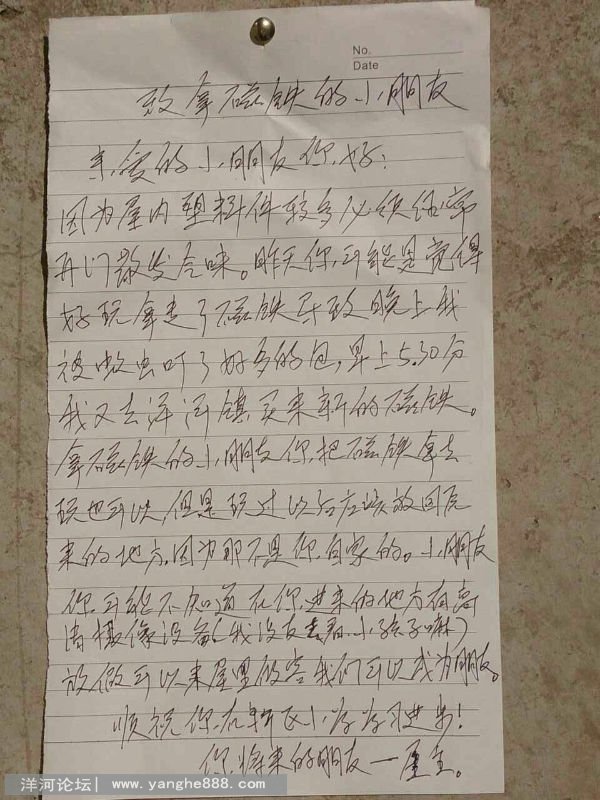 No.
Date
致拿磁铁的小朋友
亲爱的小朋友你好:
因为屋内塑料件较多必须经常
开门散发气味。昨天你可能是觉得
好玩拿走了磁铁导致晚上我
被蚊虫叮了好多的包,早上5.30分
我又去洋河镇买来新的磁铁。
拿磁铁的小朋友你把磁铁拿去
玩也可以,但是玩过以后应该放回原
来的地方,因为那不是你自家的。小朋友
你可能不知道在你进来的地方有高
清摄像设备(我没有去看,小孩子嘛)
放假可以来屋里做客我们可以成为朋友。
顺祝你在新区小学学习进步!
你将来的朋友一屋主。
洋河论坛| www.yanghe888.com